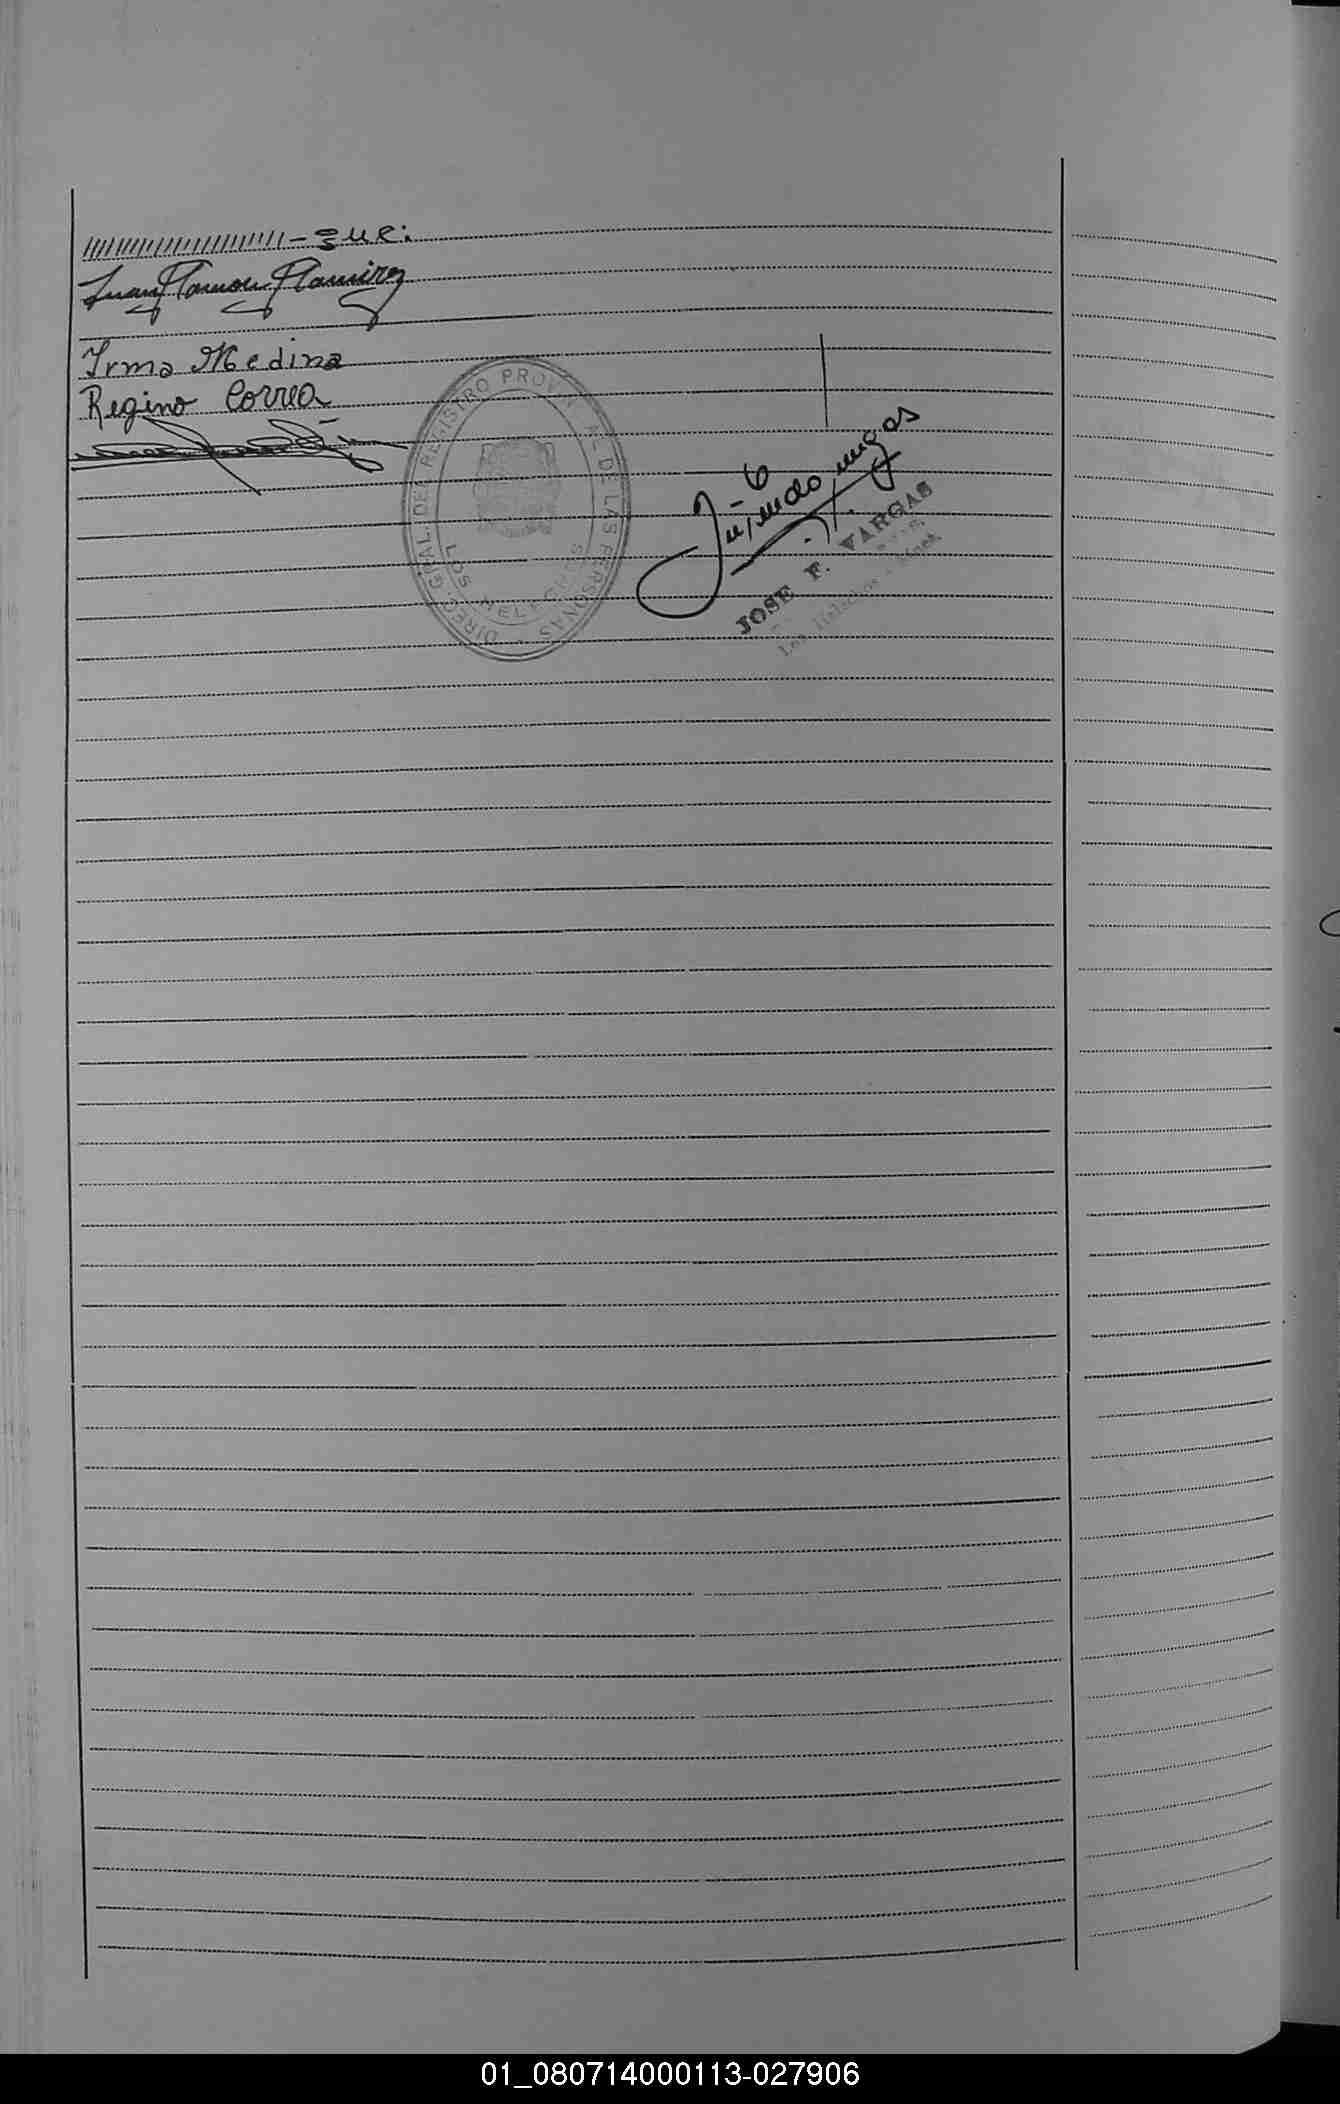 //////////////////////-gue:
Juan Ramon Ramirez
Irma Medina
Regino Correa
DIREC. GRAL. DEL REGISTRO PROVINCIAL DE LAS PERSONAS
LOS HELECHOS
JOSE F. VARGAS
Los Helechos
01_080714000113-027906